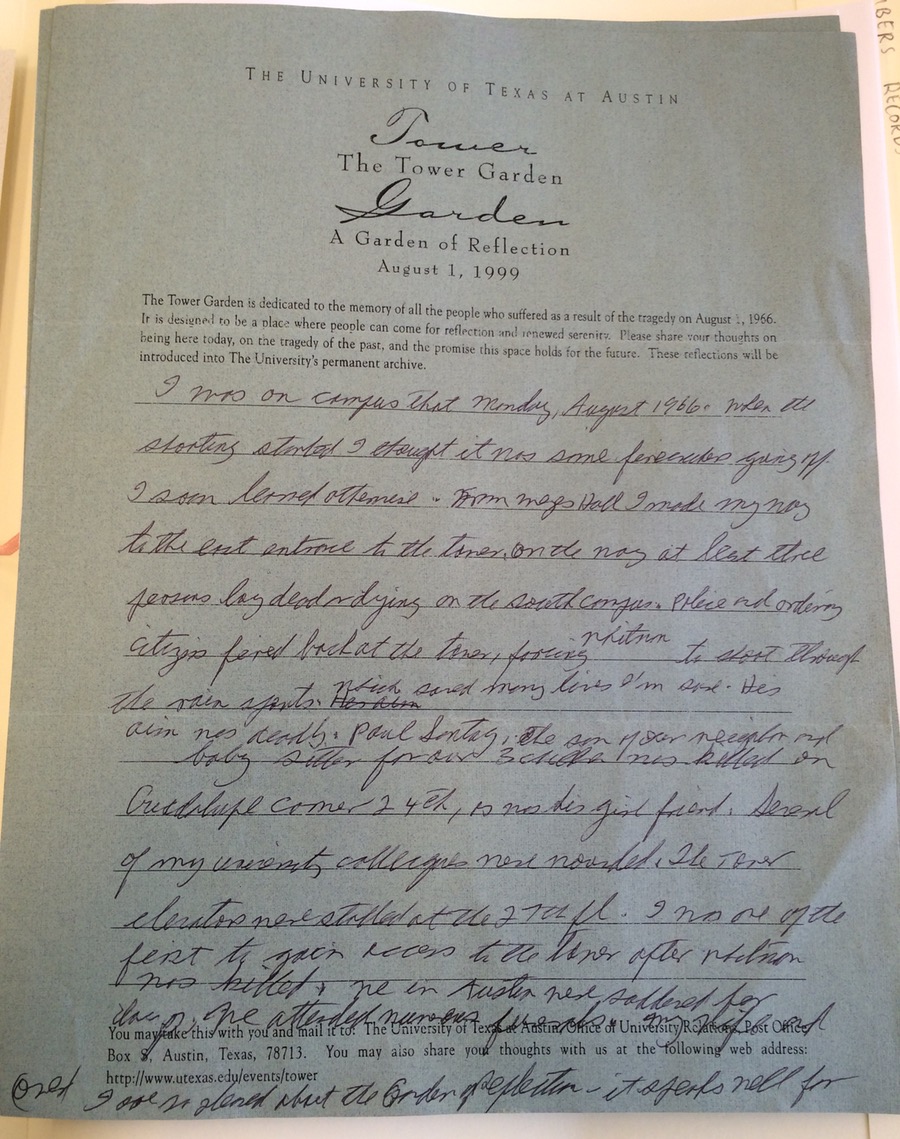 THE UNIVERSITY OF TEXAS AT AUSTIN
Tower
The Tower Garden
Garden
A Garden of Reflection
August 1, 1999
The Tower Garden is dedicated to the memory of all the people who suffered as a result of the tragedy on August 1, 1966.
It is designed to be a place where people can come for reflection and renewed serenity. Please share your thoughts on
being here today, on the tragedy of the past, and the promise this space holds for the future. These reflections will be
introduced into The University's permanent archive.
I was on campus that Monday, August 1966. When the
shooting started I thought it was some firecrackers going off.
I soon learned otherwise. From Mezes Hall I made my way
to the east entrance to the tower. On the way at least three
persons lay dead or dying on the south campus. Police and
citizens fired back at the tower, forcing Whitman to shoot through
the rain spouts. Which saved many lives I'm sure. His
aim was deadly. Paul Sontag, the son of our neighbor and
baby sitter for our 3 children was killed on
Guadalupe corner 24th, as was his girl friend. Several
of my university colleagues were wounded. The Tower
elevators were stalled at the 27th fl. I was one of the
first to gain access to the tower after Whitman
was killed. We in Austin were saddened for
days. We attended numerous funerals. My wife and
You may take this with you and mail it to: The University of Texas at Austin/Office of University Relations, Post Office
Box 8, Austin, Texas, 78713. You may also share your thoughts with us at the following web address:
http://www.utexas.edu/events/tower
I are so pleased about the Garden of Reflection - it speaks well for
(over)
BERS RECORDS